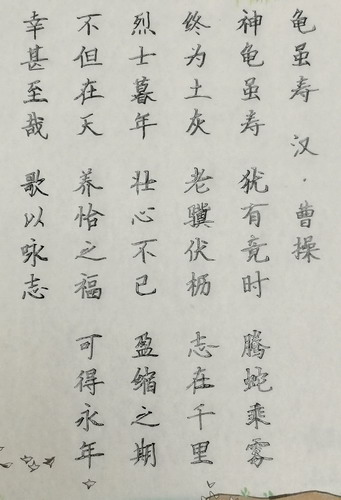 龟虽寿 汉·曹操
神龟虽寿 犹有竟时 腾蛇乘雾
终为土灰 老骥伏枥 志在千里
烈士暮年 壮心不已 盈缩之期
不但在天 养怡之福 可得永年
幸甚至哉 歌以咏志